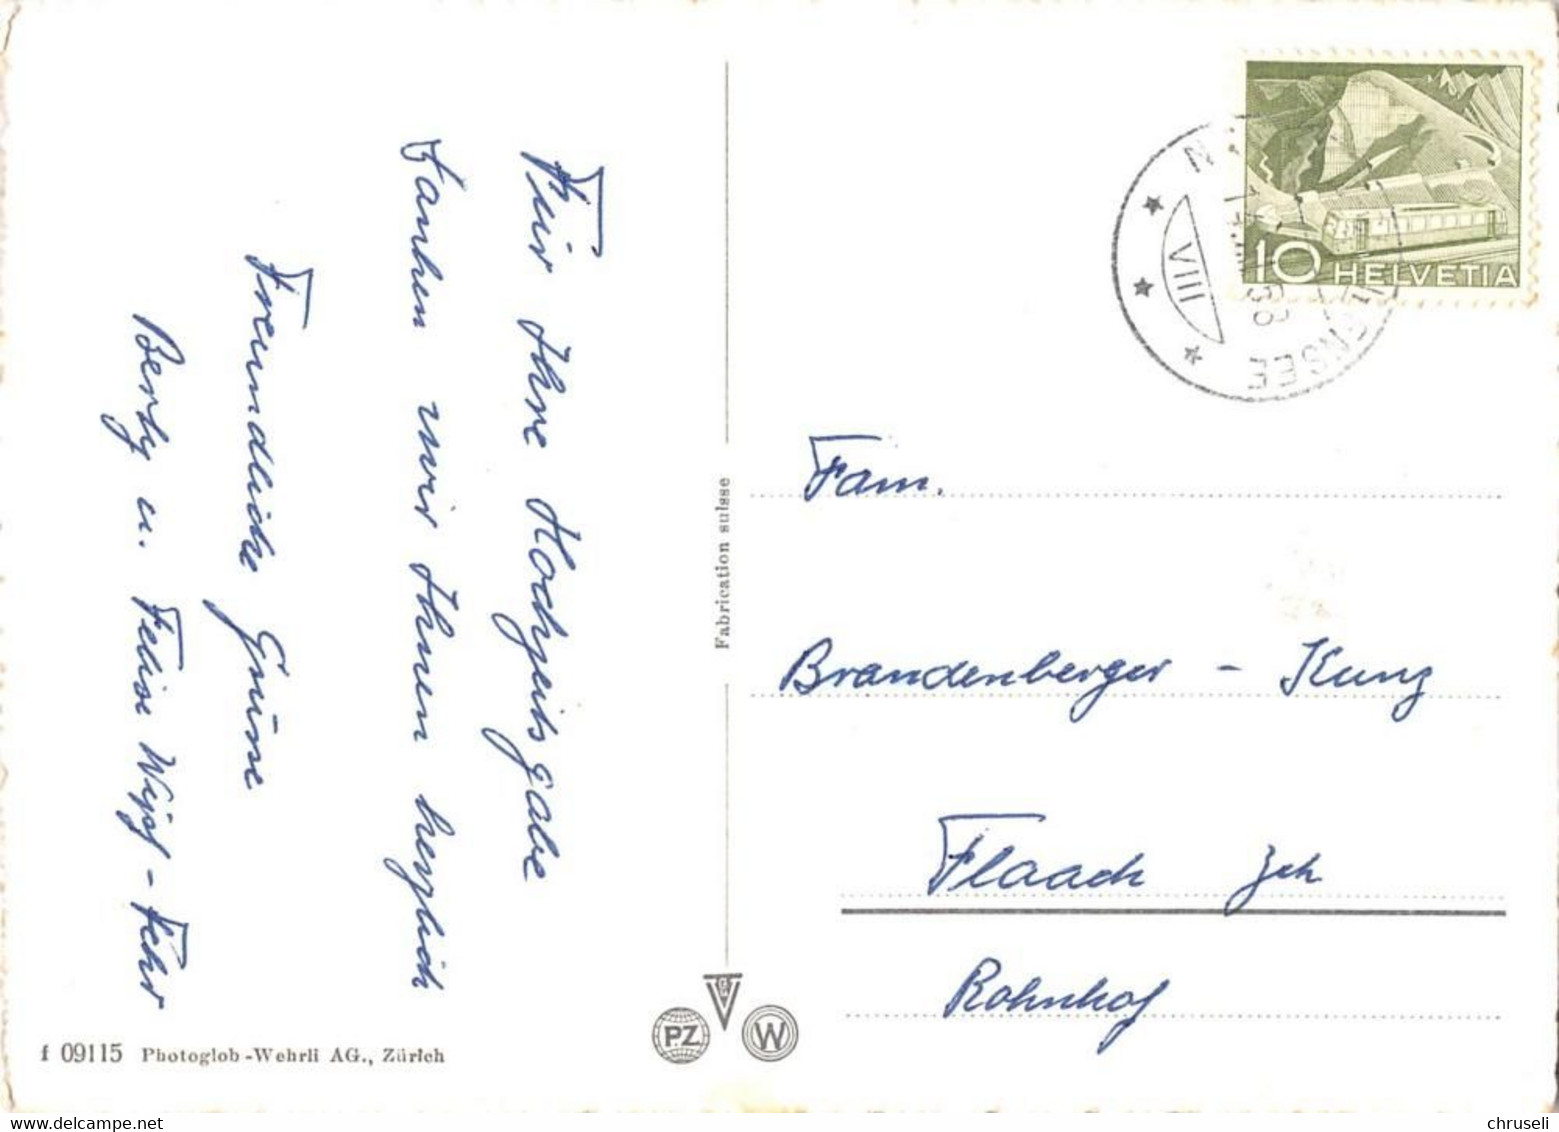 Für Ihre Hochzeitsgabe
danken wir Ihnen herzlich
Freundliche Grüsse
Berty u. Felix Wyss-Fehr
f 09115 Photoglob-Wehrli AG., Zürich
Fabrication suisse
PZ
W
10 HELVETIA
VIII
Fam.
Brandenberger - Kunz
Flaach Zch
Rohnhof
delcampe.net
chruseli